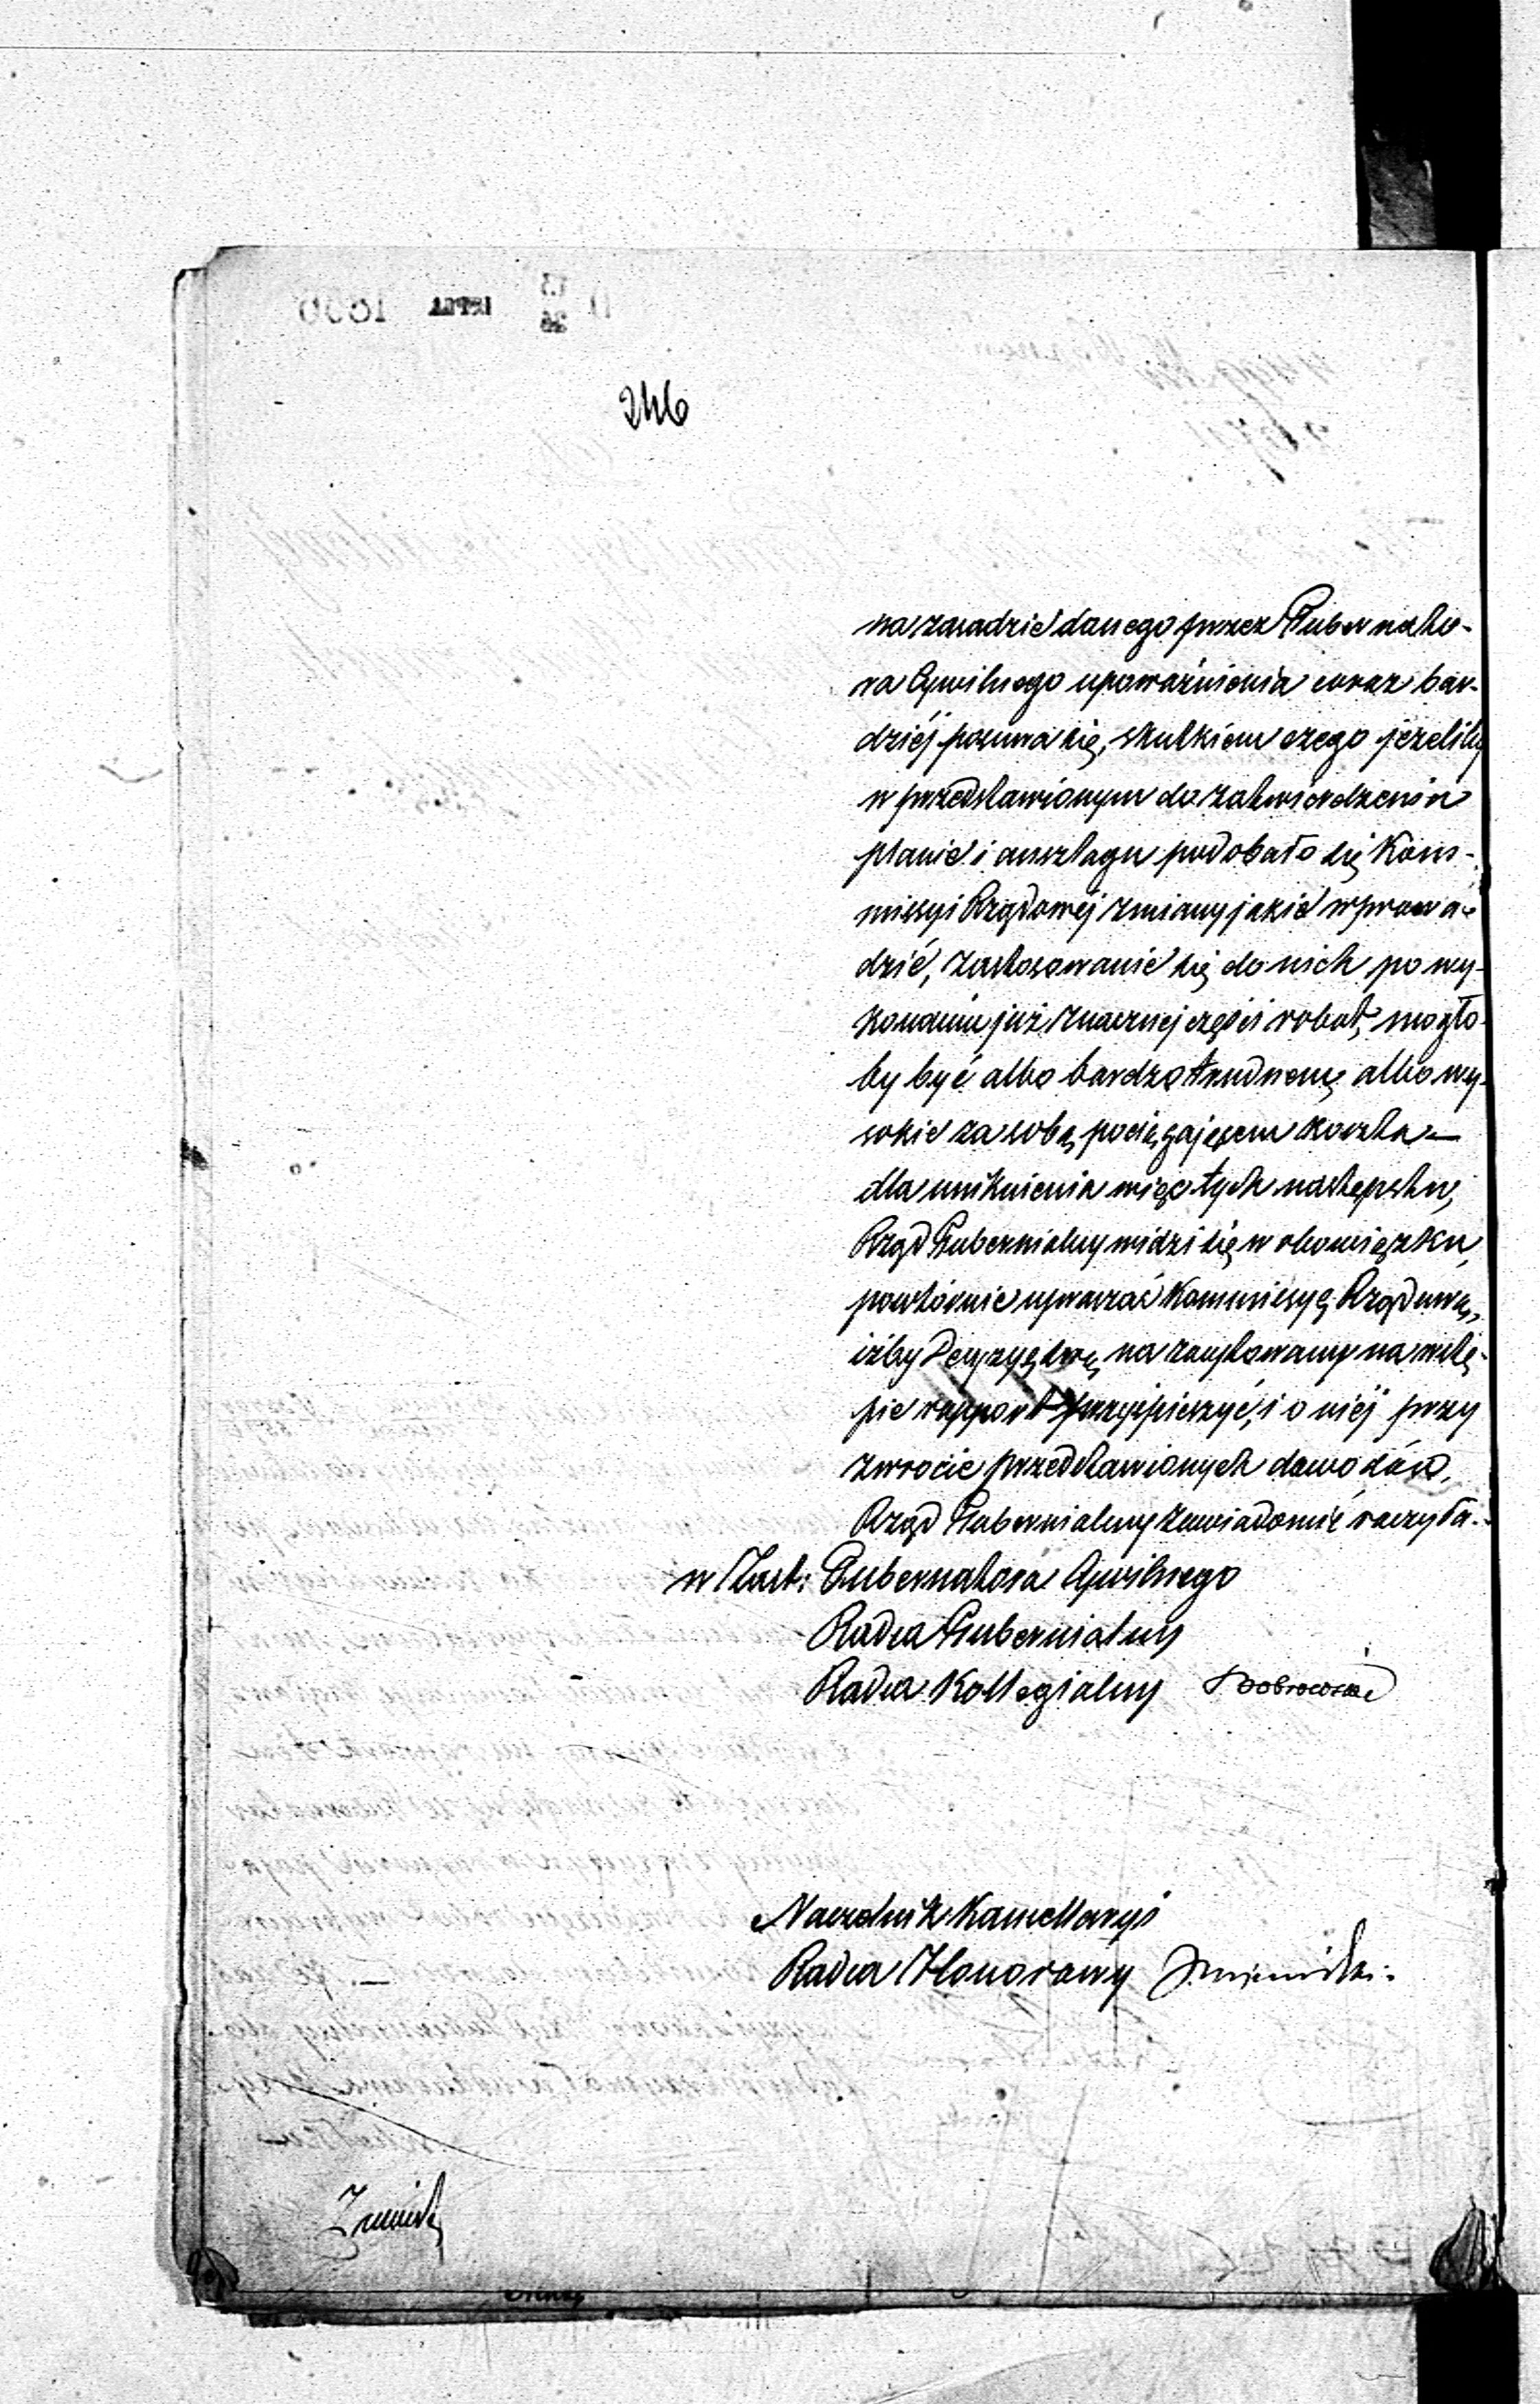 246
na zasadzie danego przez Gubernato-
ra Cywilnego upoważnienia coraz bar-
dziéj posuwa się, skutkiem czego jeżeliby
w przedstawionym do zatwierdzenia
planie i anszlagu podobało się Kom-
missyi Rządowéj zmiany jakie wprowa-
dzić, zastosowanie się do nich po wy-
konaniu już znacznej części robót, mogło-
by być albo bardzo trudnem, albo wy-
sokie za sobą pociągającem koszta —
dla uniknienia więc tych następstw,
Rząd Gubernialny widzi się w obowiązku,
powtórnie upraszać Kommissyę Rządową,
iżby Decyzyę swą na zacytowany na wstę-
pie rapport przyspieszyć, i o niéj przy
zwrocie przedstawionych dowodów,
Rząd Gubernialny zawiadomić raczyła.
w Zast: Gubernatora Cywilnego
Radca Gubernialny
Radca Kollegialny
Naczelnik Kancellaryi
Radca Honorowy